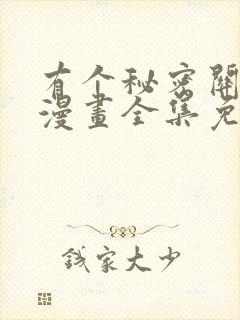 有个秘密開
漫畫全集免
錢家大少